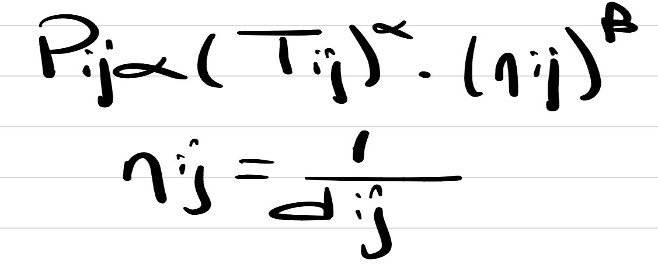 Pij ∝ (Tij)^α · (ηij)^β
ηij = 1/dij